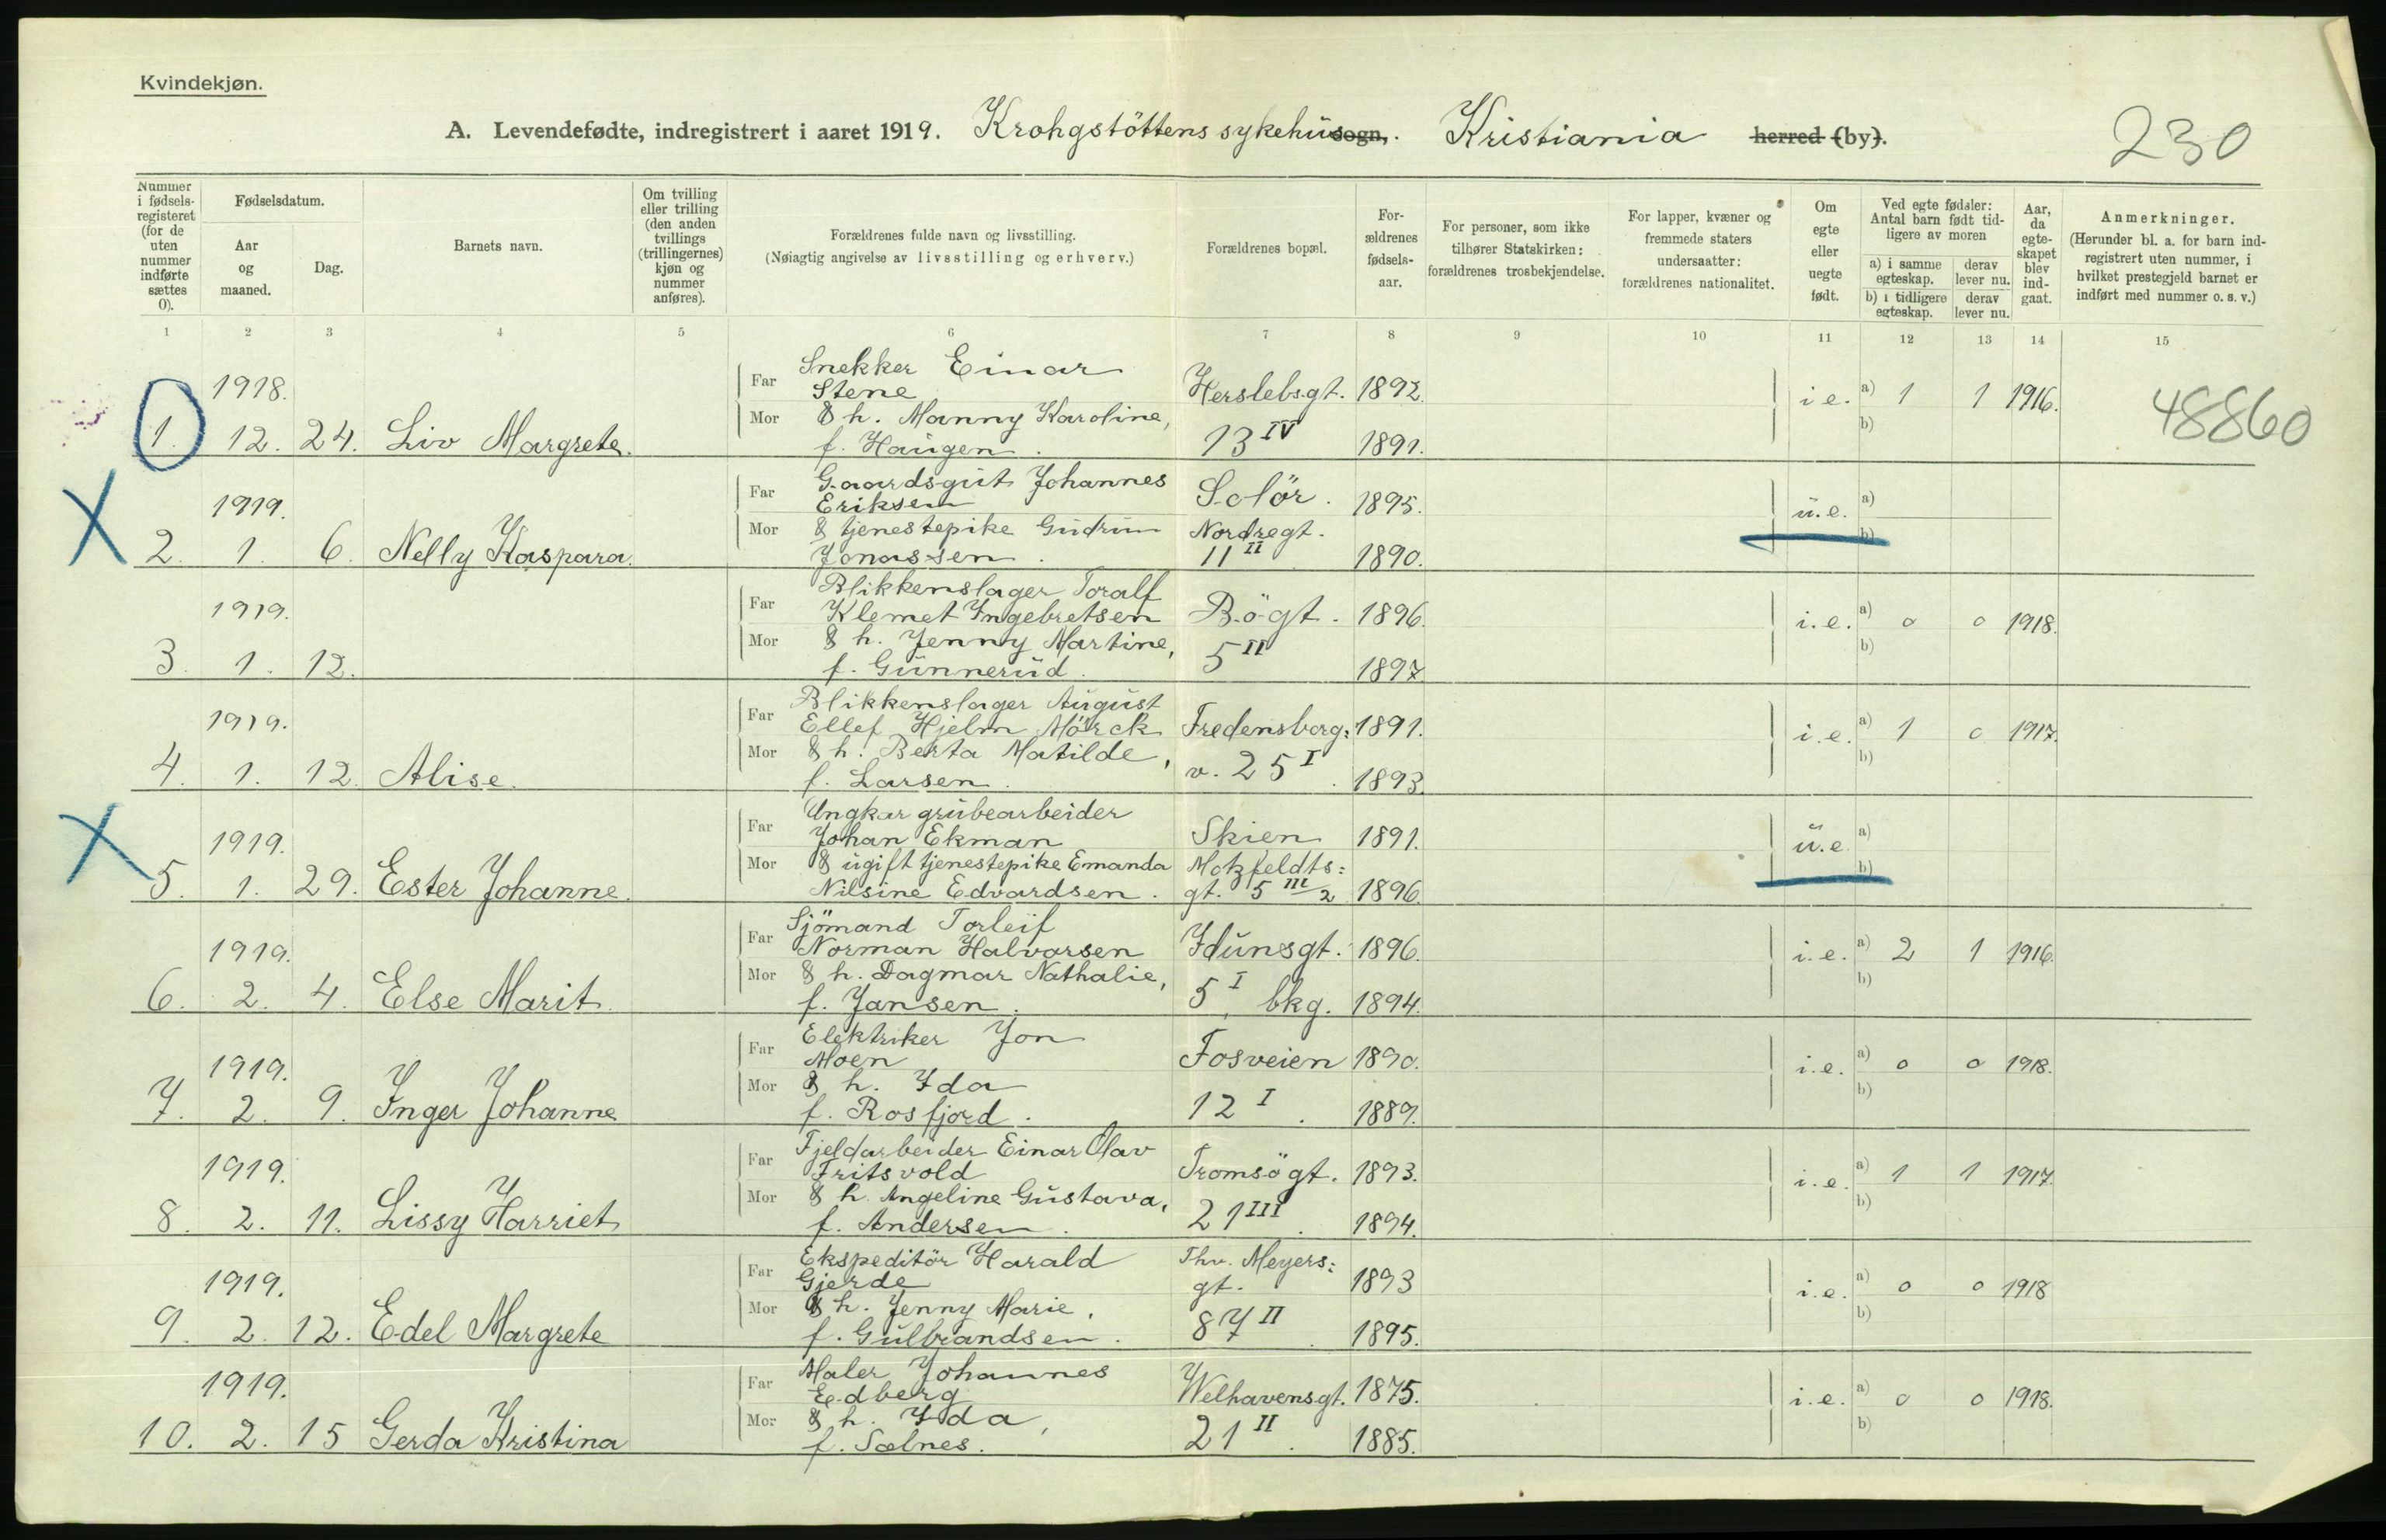 Kvindekjøn.
A. Levendefødte, indregistrert i aaret 1919. Krohgstöttens sykehus sogn, Kristiania herred (by).
230
Nummer i fødselsregisteret (for de uten nummer indførte sættes 0).
Fødselsdatum.
Aar og maaned.
Dag.
Barnets navn.
Om tvilling eller trilling (den anden tvillings (trillingernes) kjøn og nummer anføres).
Forældrenes fulde navn og livsstilling.
(Nøiagtig angivelse av livsstilling og erhverv.)
Forældrenes bopæl.
Forældrenes fødselsaar.
For personer, som ikke tilhører Statskirken: forældrenes trosbekjendelse.
For lapper, kvæner og fremmede staters undersaatter: forældrenes nationalitet.
Om egte eller uegte født.
Ved egte fødsler: Antal barn født tidligere av moren
a) i samme egteskap.
derav lever nu.
b) i tidligere egteskap.
derav lever nu.
Aar, da egteskapet blev indgaat.
Anmerkninger.
(Herunder bl. a. for barn indregistrert uten nummer, i hvilket prestegjeld barnet er indført med nummer o. s. v.)
1 2 3 4 5 6 7 8 9 10 11 12 13 14 15
Far Snekker Einar
1918. Stene Herslebsgt. 1892. i e. a) 1 1 1916. 48860
Mor & h. Manny Karoline, b)
1. 12. 24. Liv Margrete. f. Haugen. 13 IV 1891.
Far Gaardsgut Johannes
1919. Eriksen Solör. 1895. u.e. a)
Mor & tjenestepike Gudrun Nordregt. b)
2. 1. 6. Nelly Kaspara. Jonassen. 11 II 1890.
Far Blikkenslager Toralf
1919. Klemet Ingebretsen Bögt. 1896. i.e. a) 0 0 1918.
Mor & h. Jenny Martine, b)
3. 1. 12. f. Gunnerud. 5 II 1897
Far Blikkenslager August
1919. Ellef Hjelm Mörck Fredensborg: 1891. i.e. a) 1 0 1917.
Mor & h. Berta Matilde, b)
4. 1. 12. Alise. f. Larsen. v. 25 I. 1893.
Far Ungkar grubearbeider
1919. Johan Ekman Skien 1891. u.e a)
Mor & ugift tjenestepike Emanda Motzfeldts: b)
5. 1. 29. Ester Johanne. Nilsine Edvardsen. gt. 5 III 2 1896.
Far Sjömand Torleif
1919. Norman Halvorsen Idunsgt. 1896. i.e. a) 2 1 1916.
Mor & h. Dagmar Nathalie, b)
6. 2. 4. Else Marit. f. Jansen. 5 I, bkg. 1894.
Far Elektriker Jon
1919. Moen Fosveien 1890. i.e. a) 0 0 1918.
Mor & h. Ida b)
7. 2. 9. Inger Johanne f. Rosfjord. 12 I. 1889.
Far Fjeldarbeider Einar Olav
1919. Fritsvold Tromsögt. 1893. i.e. a) 1 1 1917.
Mor & h. Angeline Gustava, b)
8. 2. 11. Lissy Harriet f. Andersen. 21 III. 1894.
Far Ekspeditör Harald Thv. Meyers:
1919. Gjerde gt. 1893 i.e. a) 0 0 1918
Mor & h. Jenny Marie, b)
9. 2. 12. Edel Margrete f. Gulbrandsen. 87 II. 1895.
Far Maler Johannes
1919. Edberg Welhavensgt. 1875. i.e. a) 0 0 1918.
Mor & h. Ida, b)
10. 2. 15 Gerda Kristina f. Sælnes. 21 II. 1885.